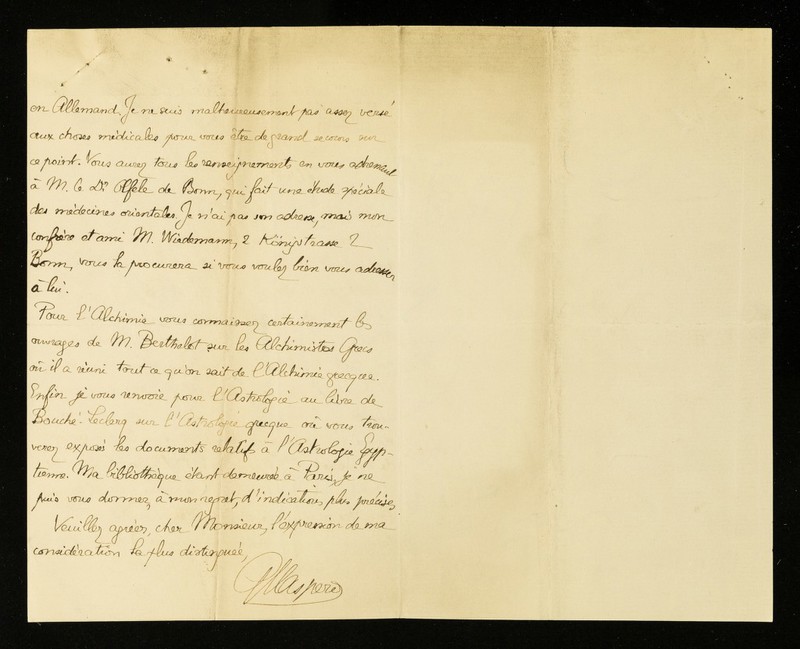 en Allemand. Je ne suis malheureusement pas assez versé
aux choses médicales pour vous être de grand secours sur
ce point. Vous aurez tous les renseignements en vous adressant
à M. le Dr. Öfele de Bonn, qui fait une étude spéciale
des médecines orientales. Je n'ai pas son adresse, mais mon
confrère et ami M. Wiedemann, 2 Königstrasse 2
Bonn, vous la procurera si vous voulez bien vous adresser
à lui.
Pour l'Alchimie vous connaissez certainement les
ouvrages de M. Berthelot sur les Alchimistes Grecs
où il a réuni tout ce qu'on sait de l'Alchimie grecque.
Enfin je vous renvoie pour l'Astrologie au livre de
Bouché-Leclerq sur l'Astrologie grecque où vous trou-
verez exposés les documents relatifs à l'Astrologie Egyp-
tienne. Ma bibliothèque étant demeurée à Paris, je ne
puis vous donner, à mon regret, d'indications plus précises.
Veuillez agréer, cher Monsieur, l'expression de ma
considération la plus distinguée,
GMaspero